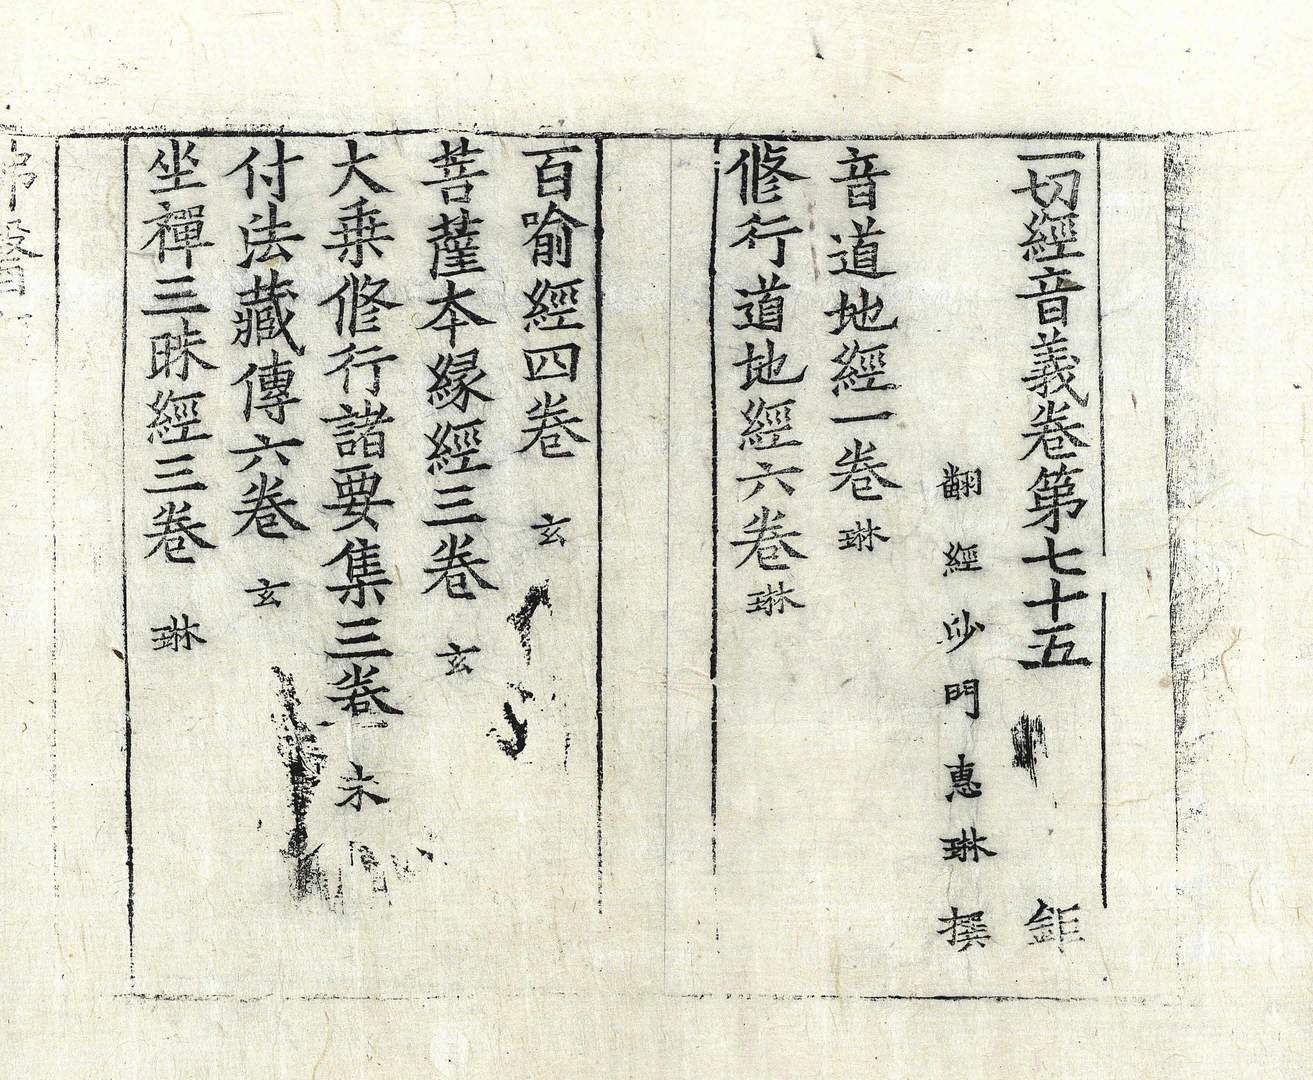 一切經音義卷第七十五 鉅
翻經沙門惠琳撰
音道地經一卷 琳
脩行道地經六卷 琳
百喻經四卷 玄
菩薩本緣經三卷 玄
大乗脩行諸要集三卷 未
付法藏傳六卷 玄
坐禪三昧經三卷 琳